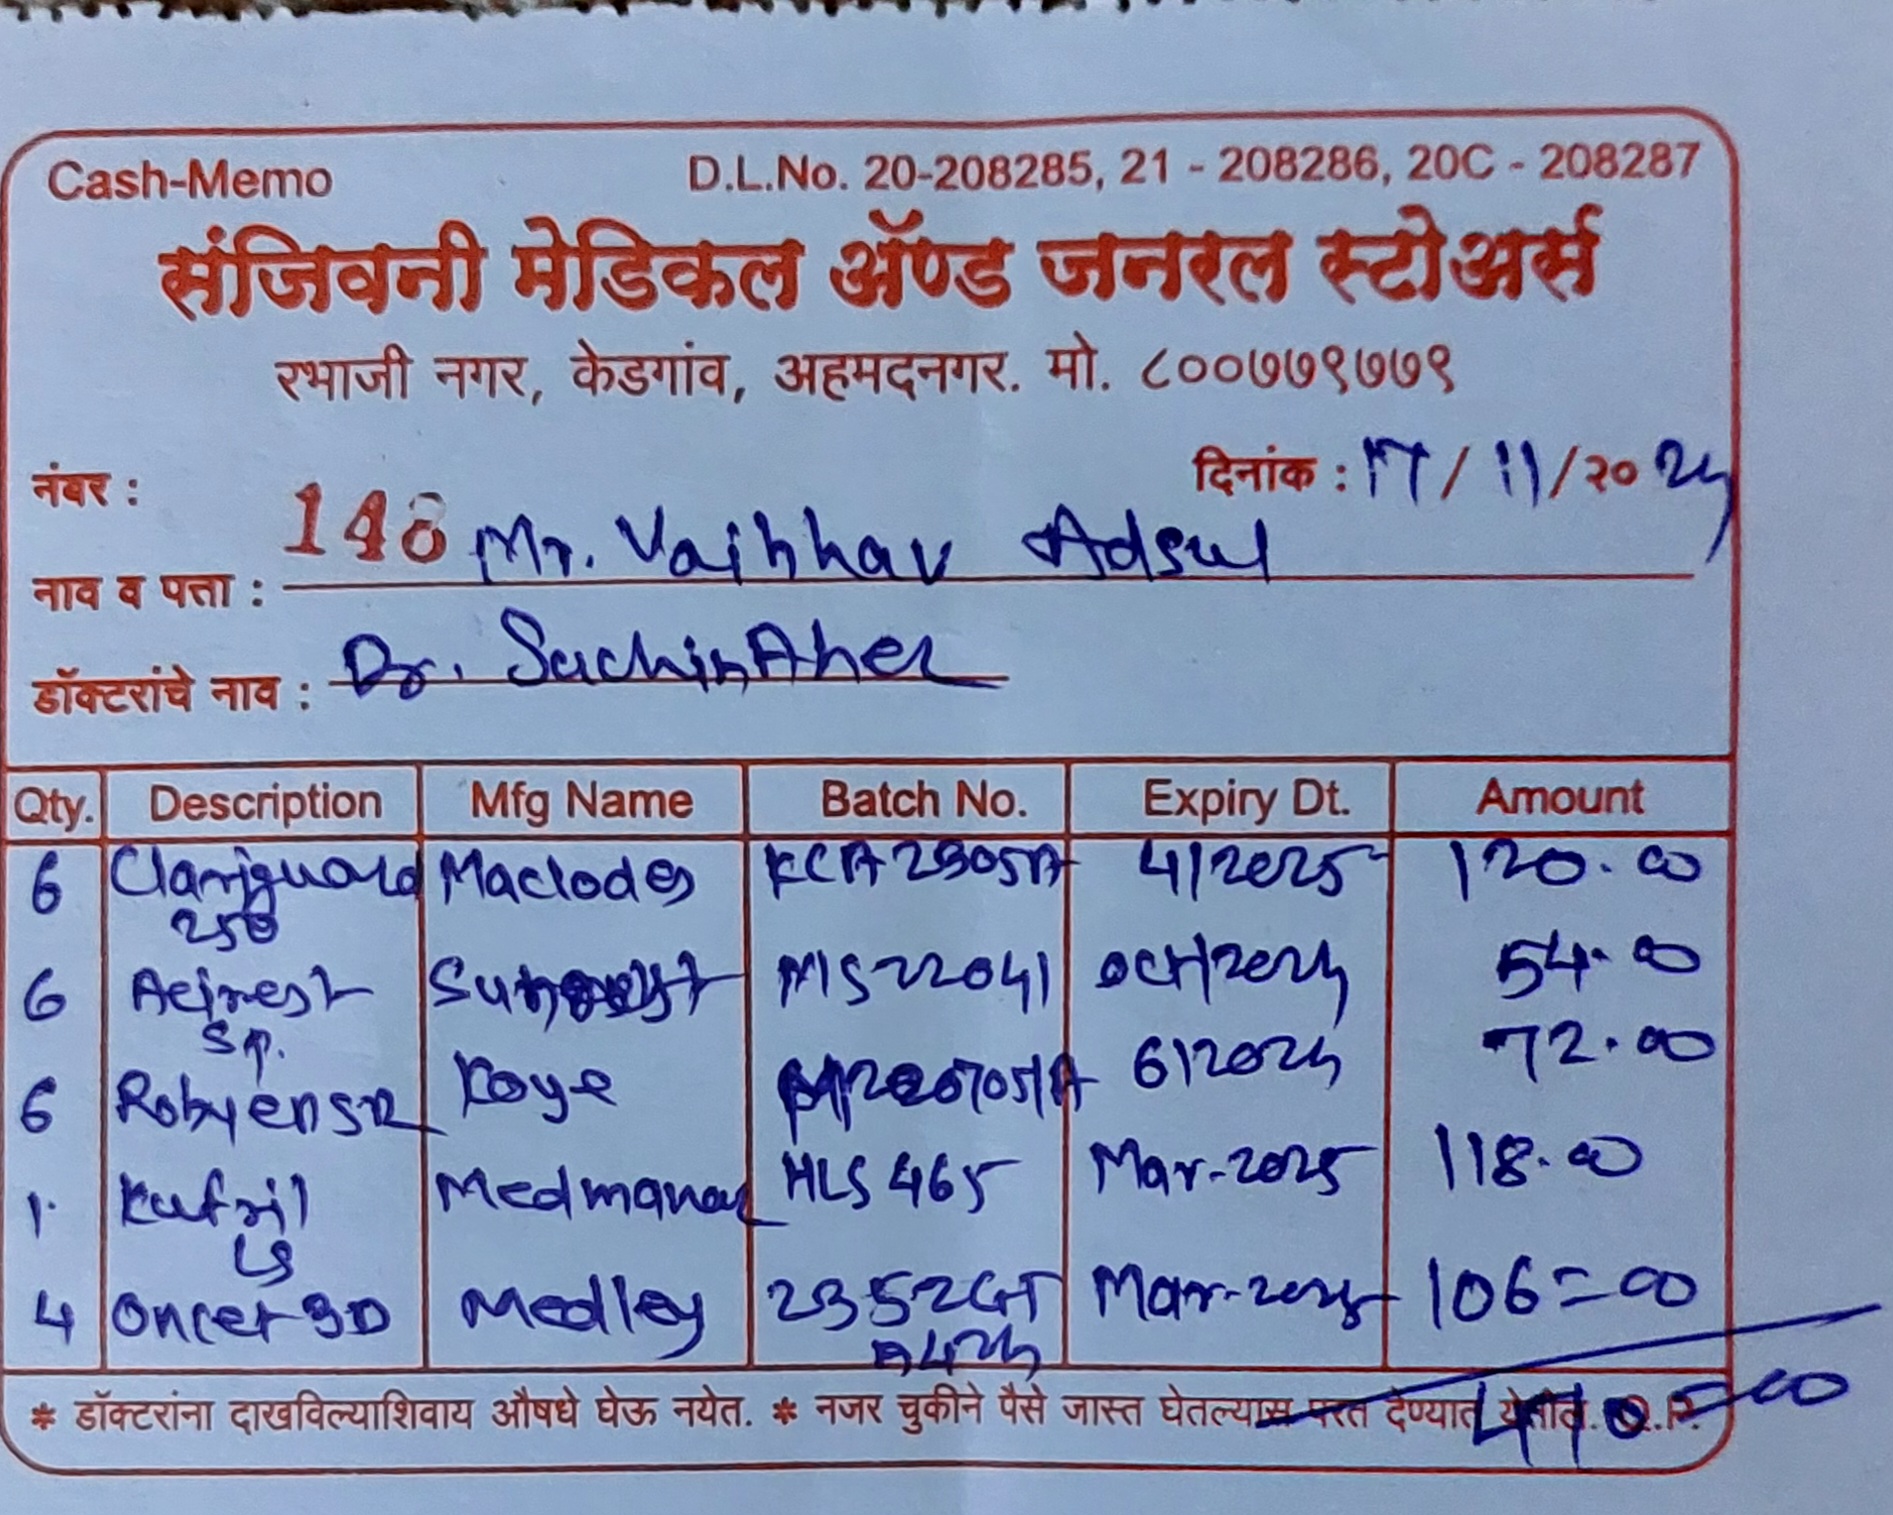 Cash-Memo D.L.No. 20-208285, 21 - 208286, 20C - 208287
संजिवनी मेडिकल ॲण्ड जनरल स्टोअर्स
रभाजी नगर, केडगांव, अहमदनगर. मो. ८००७७९७७९
नंबर : 148 दिनांक : 17/11/२० 24
नाव व पत्ता : Mr. Vaibhav Adsul
डॉक्टरांचे नाव : Dr. Sachin Aher
Qty. Description Mfg Name Batch No. Expiry Dt. Amount
6 Clariguard Maclodes KCA2305A 4/2025 120.00
250
6 Acinest MS22041 Oct/2024 54.00
sp.
6 Koye 6/2024 72.00
1. Kufril HLS465 Mar-2025 118.00
LS
4 Oncet 3D Medley 2352GT 106=00
* डॉक्टरांना दाखविल्याशिवाय औषधे घेऊ नयेत. * नजर चुकीने पैसे जास्त घेतल्यास परत देण्यात येतील. 470=00